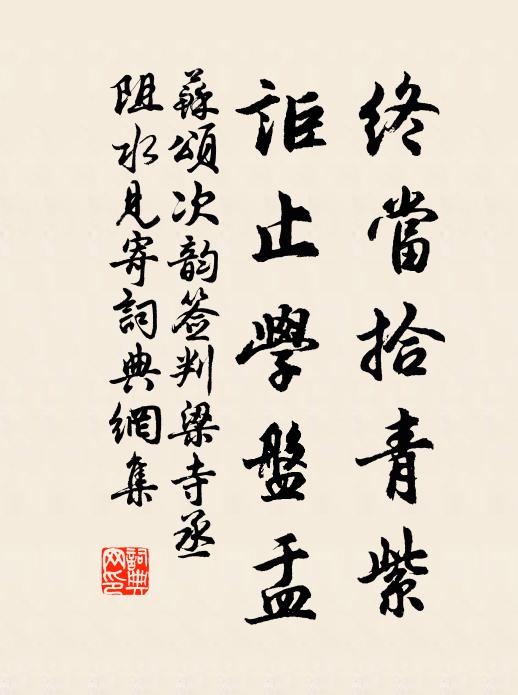 終當拾青紫
詎止學盤盂
蘇頌次韵簽判梁寺丞
阻水見寄詞典網集
詞典網印